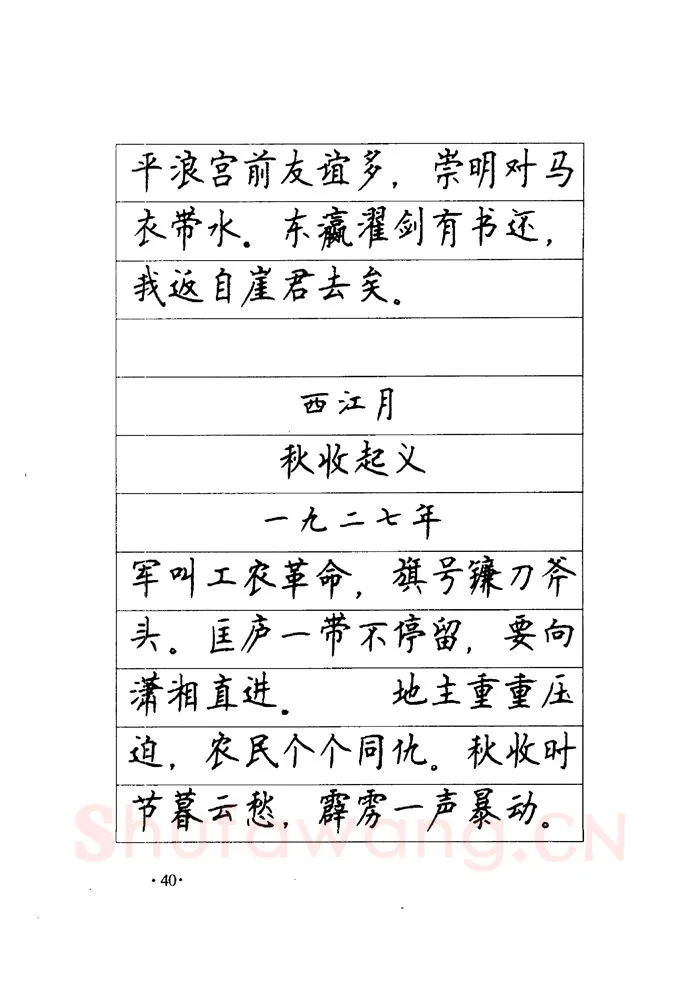 平浪宫前友谊多，崇明对马
衣带水。东瀛濯剑有书还，
我返自崖君去矣。
西江月
秋收起义
一九二七年
军叫工农革命，旗号镰刀斧
头。匡庐一带不停留，要向
潇湘直进。　地主重重压
迫，农民个个同仇。秋收时
节暮云愁，霹雳一声暴动。
Shufawang.CN
·40·